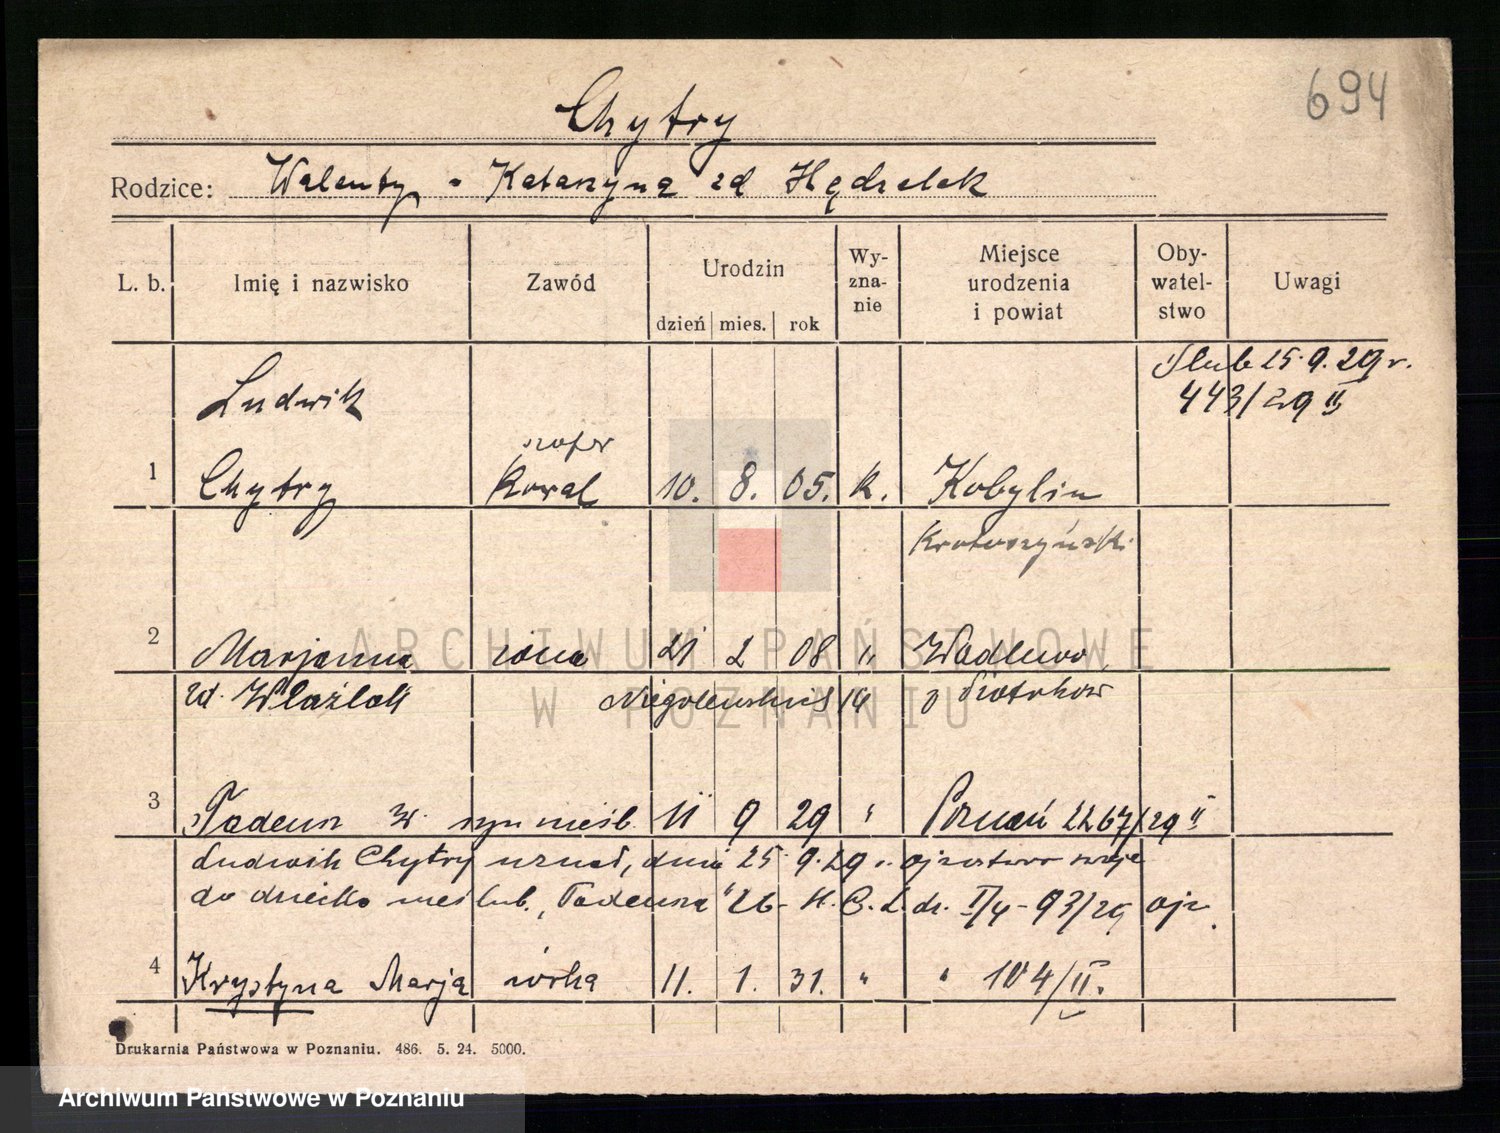 694
Chytry
Rodzice: Walenty - Katarzyna zd Hędrelek
L. b. Imię i nazwisko Zawód Urodzin dzień mies. rok Wy-zna-nie Miejsce urodzenia i powiat Oby-watel-stwo Uwagi
Ślub 25.9.29 r.
443/29 II
Ludwik
szofer
1 Chytry kowal 10. 8. 05. k. Kobylin
Krotoszyński
2 Marjanna żona 21 2 08 "
zd. Właźlak Niegolewskich 14 Piotrków
3 Tadeusz W. syn nieśl. 11 9 29 " Poznań 2267/29 II
Ludwik Chytry uznał, dnia 25.9.29 r. ojcostwo swoje
do dziecka nieślub. "Tadeusza"
4 Krystyna Marja córka 11. 1. 31. " " 104/II.
Drukarnia Państwowa w Poznaniu. 486. 5. 24. 5000.
ARCHIWUM PAŃSTWOWE
W POZNANIU
Archiwum Państwowe w Poznaniu